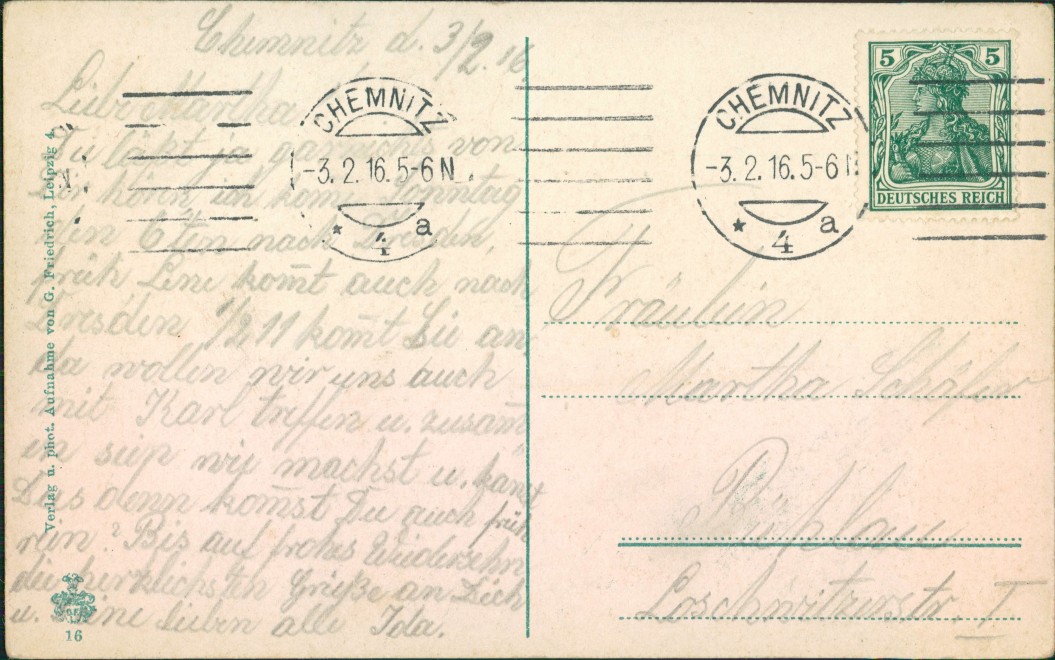 Chemnitz d. 3/2. 16
Liebe Martha
Du läßt ja gar nichts von
Dir hören ich kom̄ Sonntag
den 6ten nach Dresden,
früh Lene kom̄t auch nach
Dresden 1/2 11 kom̄t Sie an,
da wollen wir uns auch
mit Karl treffen u. zusam̄
en sein wie machst u. kan̄st
Du's denn kom̄st Du auch früh
rein? Bis auf frohes Wiedersehn
die herzlichsten Grüße an Dich
u. Deine Lieben alle Ida.
Verlag u. phot. Aufnahme von G. Friedrich, Leipzig 4
16
CHEMNITZ
-3.2.16.5-6 N.
* 4 a
CHEMNITZ
-3.2.16.5-6
* 4 a
5 5
DEUTSCHES REICH
Fräulein
Martha Schäfer
Bühlau
Loschwitzerstr. I